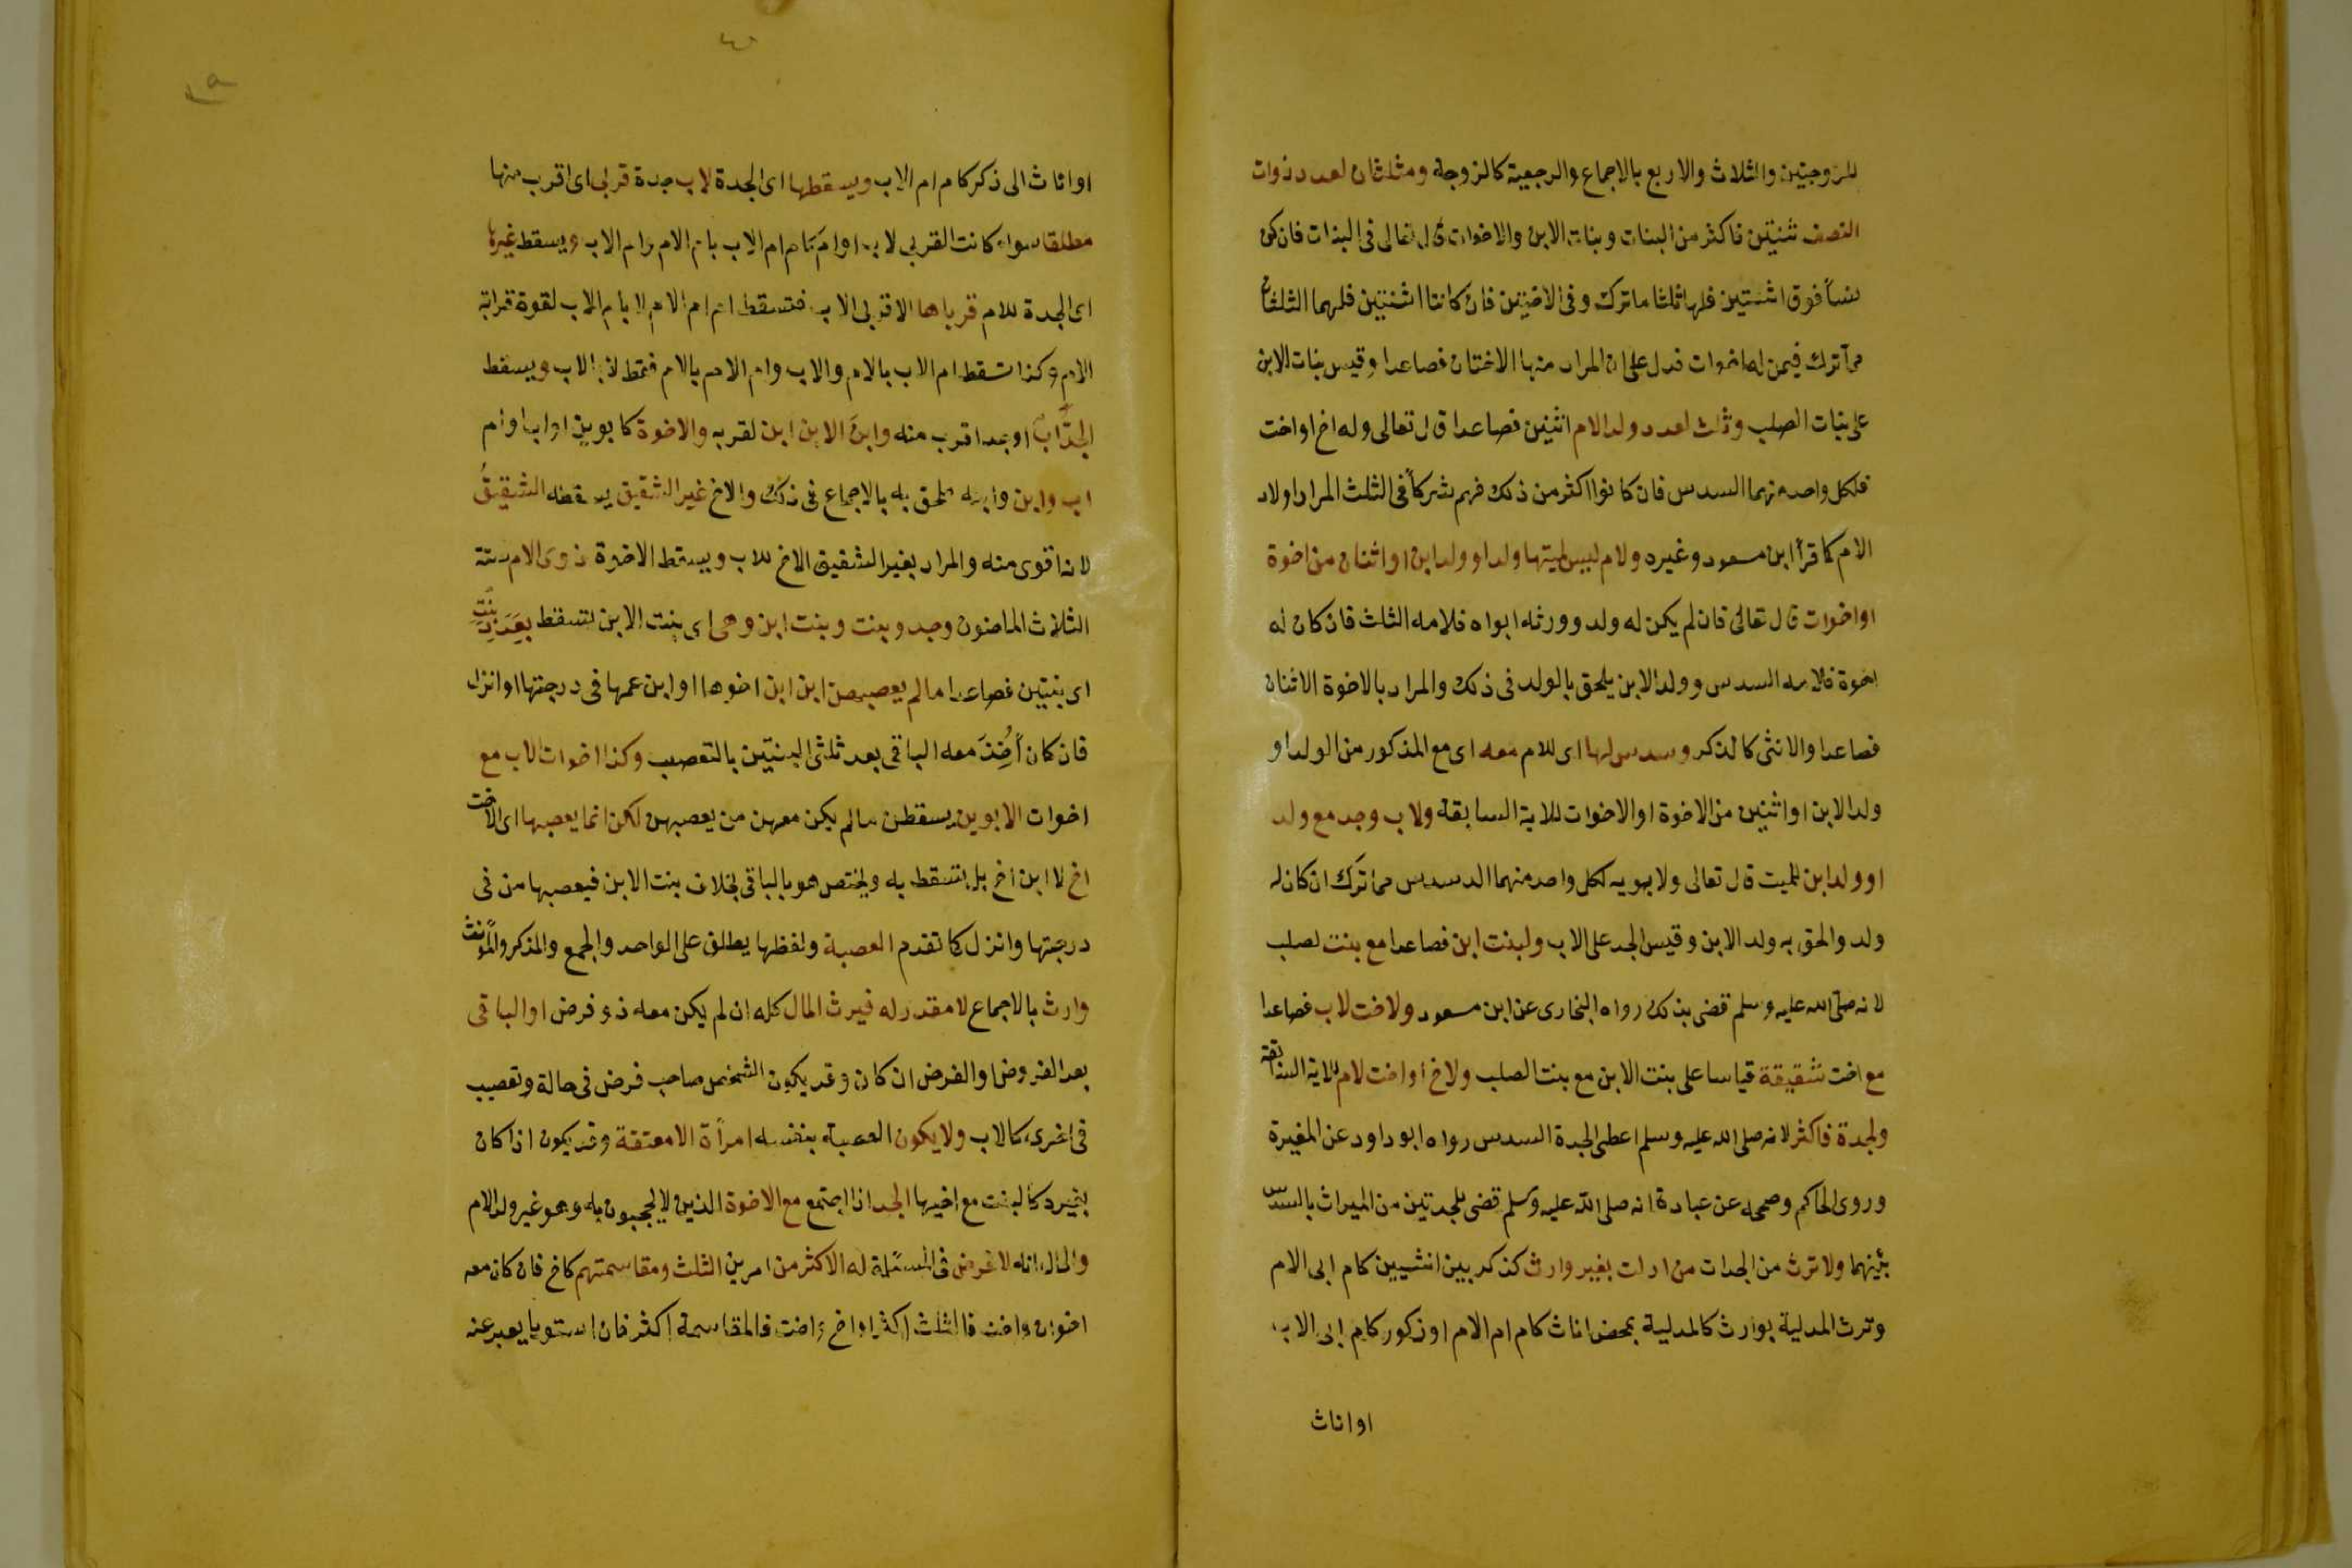 للزوجتين والثلاث والاربع بالاجماع والرجعية كالزوجة ومثلثان لعدد ذوات
النصف ثنتين فاكثر من البنات وبنات الابن والاخوات قال تعالى فى البنات فان كن
نسآ فوق اثنتين فلهن ثلثا ما ترك وفى الاختين فان كانتا اثنتين فلهما الثلثان
مما ترك فيمن له اخوات فدل على ان المراد منها الاختان فصاعدا وقيس بنات الابن
على بنات الصلب وثلث لعدد ولد الام اثنين فصاعدا قال تعالى وله اخ او اخت
فلكل واحد منهما السدس فان كانوا اكثر من ذلك فهم شركآ فى الثلث المراد اولاد
الام كما قرأ ابن مسعود وغيره ولام ليس لميتها ولد او ولد ابن او اثنان من اخوة
او اخوات قال تعالى فان لم يكن له ولد وورثه ابواه فلامه الثلث فان كان له
اخوة فلامه السدس وولد الابن يلحق بالولد فى ذلك والمراد بالاخوة الاثنان
فصاعدا والانثى كالذكر وسدس لها اى للام معه اى مع المذكور من الولد او
ولد الابن او اثنين من الاخوة او الاخوات للاية السابقة ولاب وجد مع ولد
او ولد ابن للميت قال تعالى ولابويه لكل واحد منهما السدس مما ترك ان كان له
ولد والحق به ولد الابن وقيس الجد على الاب ولبنت ابن فصاعدا مع بنت لصلب
لانه صلى الله عليه وسلم قضى بذلك رواه البخارى عن ابن مسعود ولاخت لاب فصاعدا
مع اخت شقيقة قياسا على بنت الابن مع بنت الصلب ولاخ او اخت لام للاية السابقة
ولجدة فاكثر لانه صلى الله عليه وسلم اعطى الجدة السدس رواه ابو داود عن المغيرة
وروى الحاكم وصححه عن عبادة انه صلى الله عليه وسلم قضى للجدتين من الميراث بالسدس
بينهما ولا ترث من الجدات من ادلت بغير وارث كذكر بين انثيين كام ابى الام
وترث المدلية بوارث كالمدلية بمحض اناث كام ام الام او ذكور كام ابى الاب
او اناث
او اناث الى ذكر كام ام الاب ويسقطها اى الجدة لاب جدة قربى اى اقرب منها
مطلقا سواء كانت القربى لاب او ام كام ام الاب بام الام وام الاب ويسقط غيرها
اى الجدة للام قرباها لا قربى الاب فتسقط ام ام الام لا بام الاب لقوة قرابة
الام وكذا تسقط ام الاب بالام والاب وام الام بالام فقط لا بالاب ويسقط
الجد اب او جد اقرب منه وابن الابن ابن لقربه والاخوة لابوين او اب او ام
اب وابن وابنه ملحق به بالاجماع فى ذلك والاخ غير الشقيق يسقطه الشقيق
لانه اقوى منه والمراد بغير الشقيق الاخ للاب ويسقط الاخوة ذوى الام ستة
الثلاث الماضون وجد وبنت وبنت ابن وهى اى بنت الابن تسقط بعدد بنت
اى بنتين فصاعدا ما لم يعصبهن ابن ابن اخوها او ابن عمها فى درجتها او انزل
فان كان أخذ معه الباقى بعد ثلثى البنتين بالتعصب وكذا اخوات الاب مع
اخوات الابوين يسقطن ما لم يكن معهن من يعصبهن لكن انما يعصبها اى الاخت
اخ لا ابن اخ بل تسقط به ويختص هو بالباقى بخلاف بنت الابن فيعصبها من فى
درجتها وانزل كما تقدم العصبة ولفظها يطلق على الواحد والجمع والمذكر والمؤنث
وارث بالاجماع لا مقدر له فيرث المال كله ان لم يكن معه ذو فرض او الباقى
بعد الفروض او الفرض ان كان وقد يكون الشخص صاحب فرض فى حالة وتعصيب
فى اخرى كالاب ولا يكون العصبة بنفسه امرأة الا معتقة وقد يكون اذا كان
بغيره كالبنت مع اخيها الجد اذا اجتمع مع الاخوة الذين لا يحجبون به وهو غير ولد الام
والحال انه لا فرض فى المسئلة له الاكثر من امرين الثلث ومقاسمتهم كاخ فان كان معه
اخوان واخت فالثلث اكثر او اخ واخت فالمقاسمة اكثر فان استويا يعبر عنه